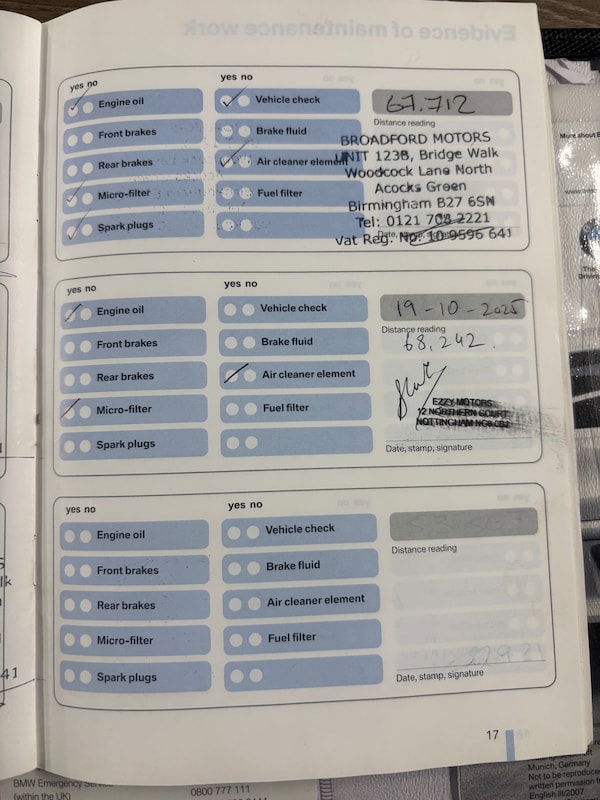 yes no
yes no
Engine oil
Vehicle check
67.712
Distance reading
Front brakes
Brake fluid
BROADFORD MOTORS
Rear brakes
Air cleaner element
UNIT 123B, Bridge Walk
Woodcock Lane North
Micro-filter
Fuel filter
Acocks Green
Birmingham B27 6SN
Spark plugs
Tel: 0121 708 2221
Vat Reg. No. 10 9596 641
yes no
yes no
Engine oil
Vehicle check
19-10-2025
Distance reading
Front brakes
Brake fluid
68,242.
Rear brakes
Air cleaner element
Micro-filter
Fuel filter
EZZY MOTORS
12 NORTHERN COURT
NOTTINGHAM
Spark plugs
Date, stamp, signature
yes no
yes no
Engine oil
Vehicle check
Distance reading
Front brakes
Brake fluid
Rear brakes
Air cleaner element
Micro-filter
Fuel filter
Spark plugs
Date, stamp, signature
17
BMW Emergency
(within the UK)
0800 777 111
More about
Munich, Germany
Not to be reproduce
written permission
English III/2007